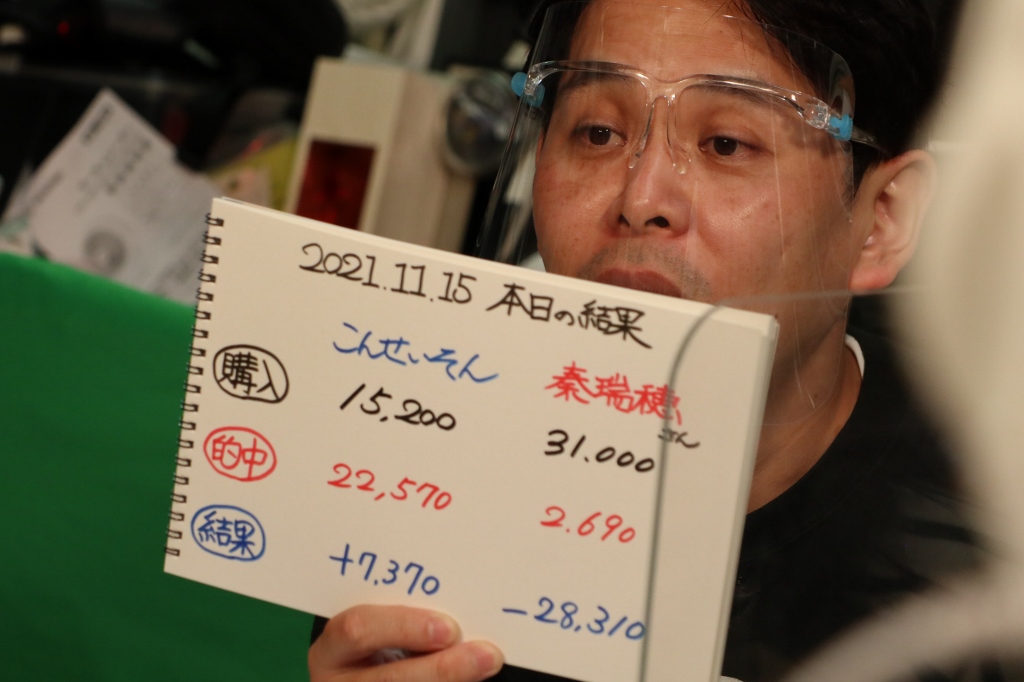 2021.11.15 本日の結果
こんせいそん 秦瑞穂さん
購入 15,200 31.000
的中 22,570 2.690
結果 +7,370 -28,310